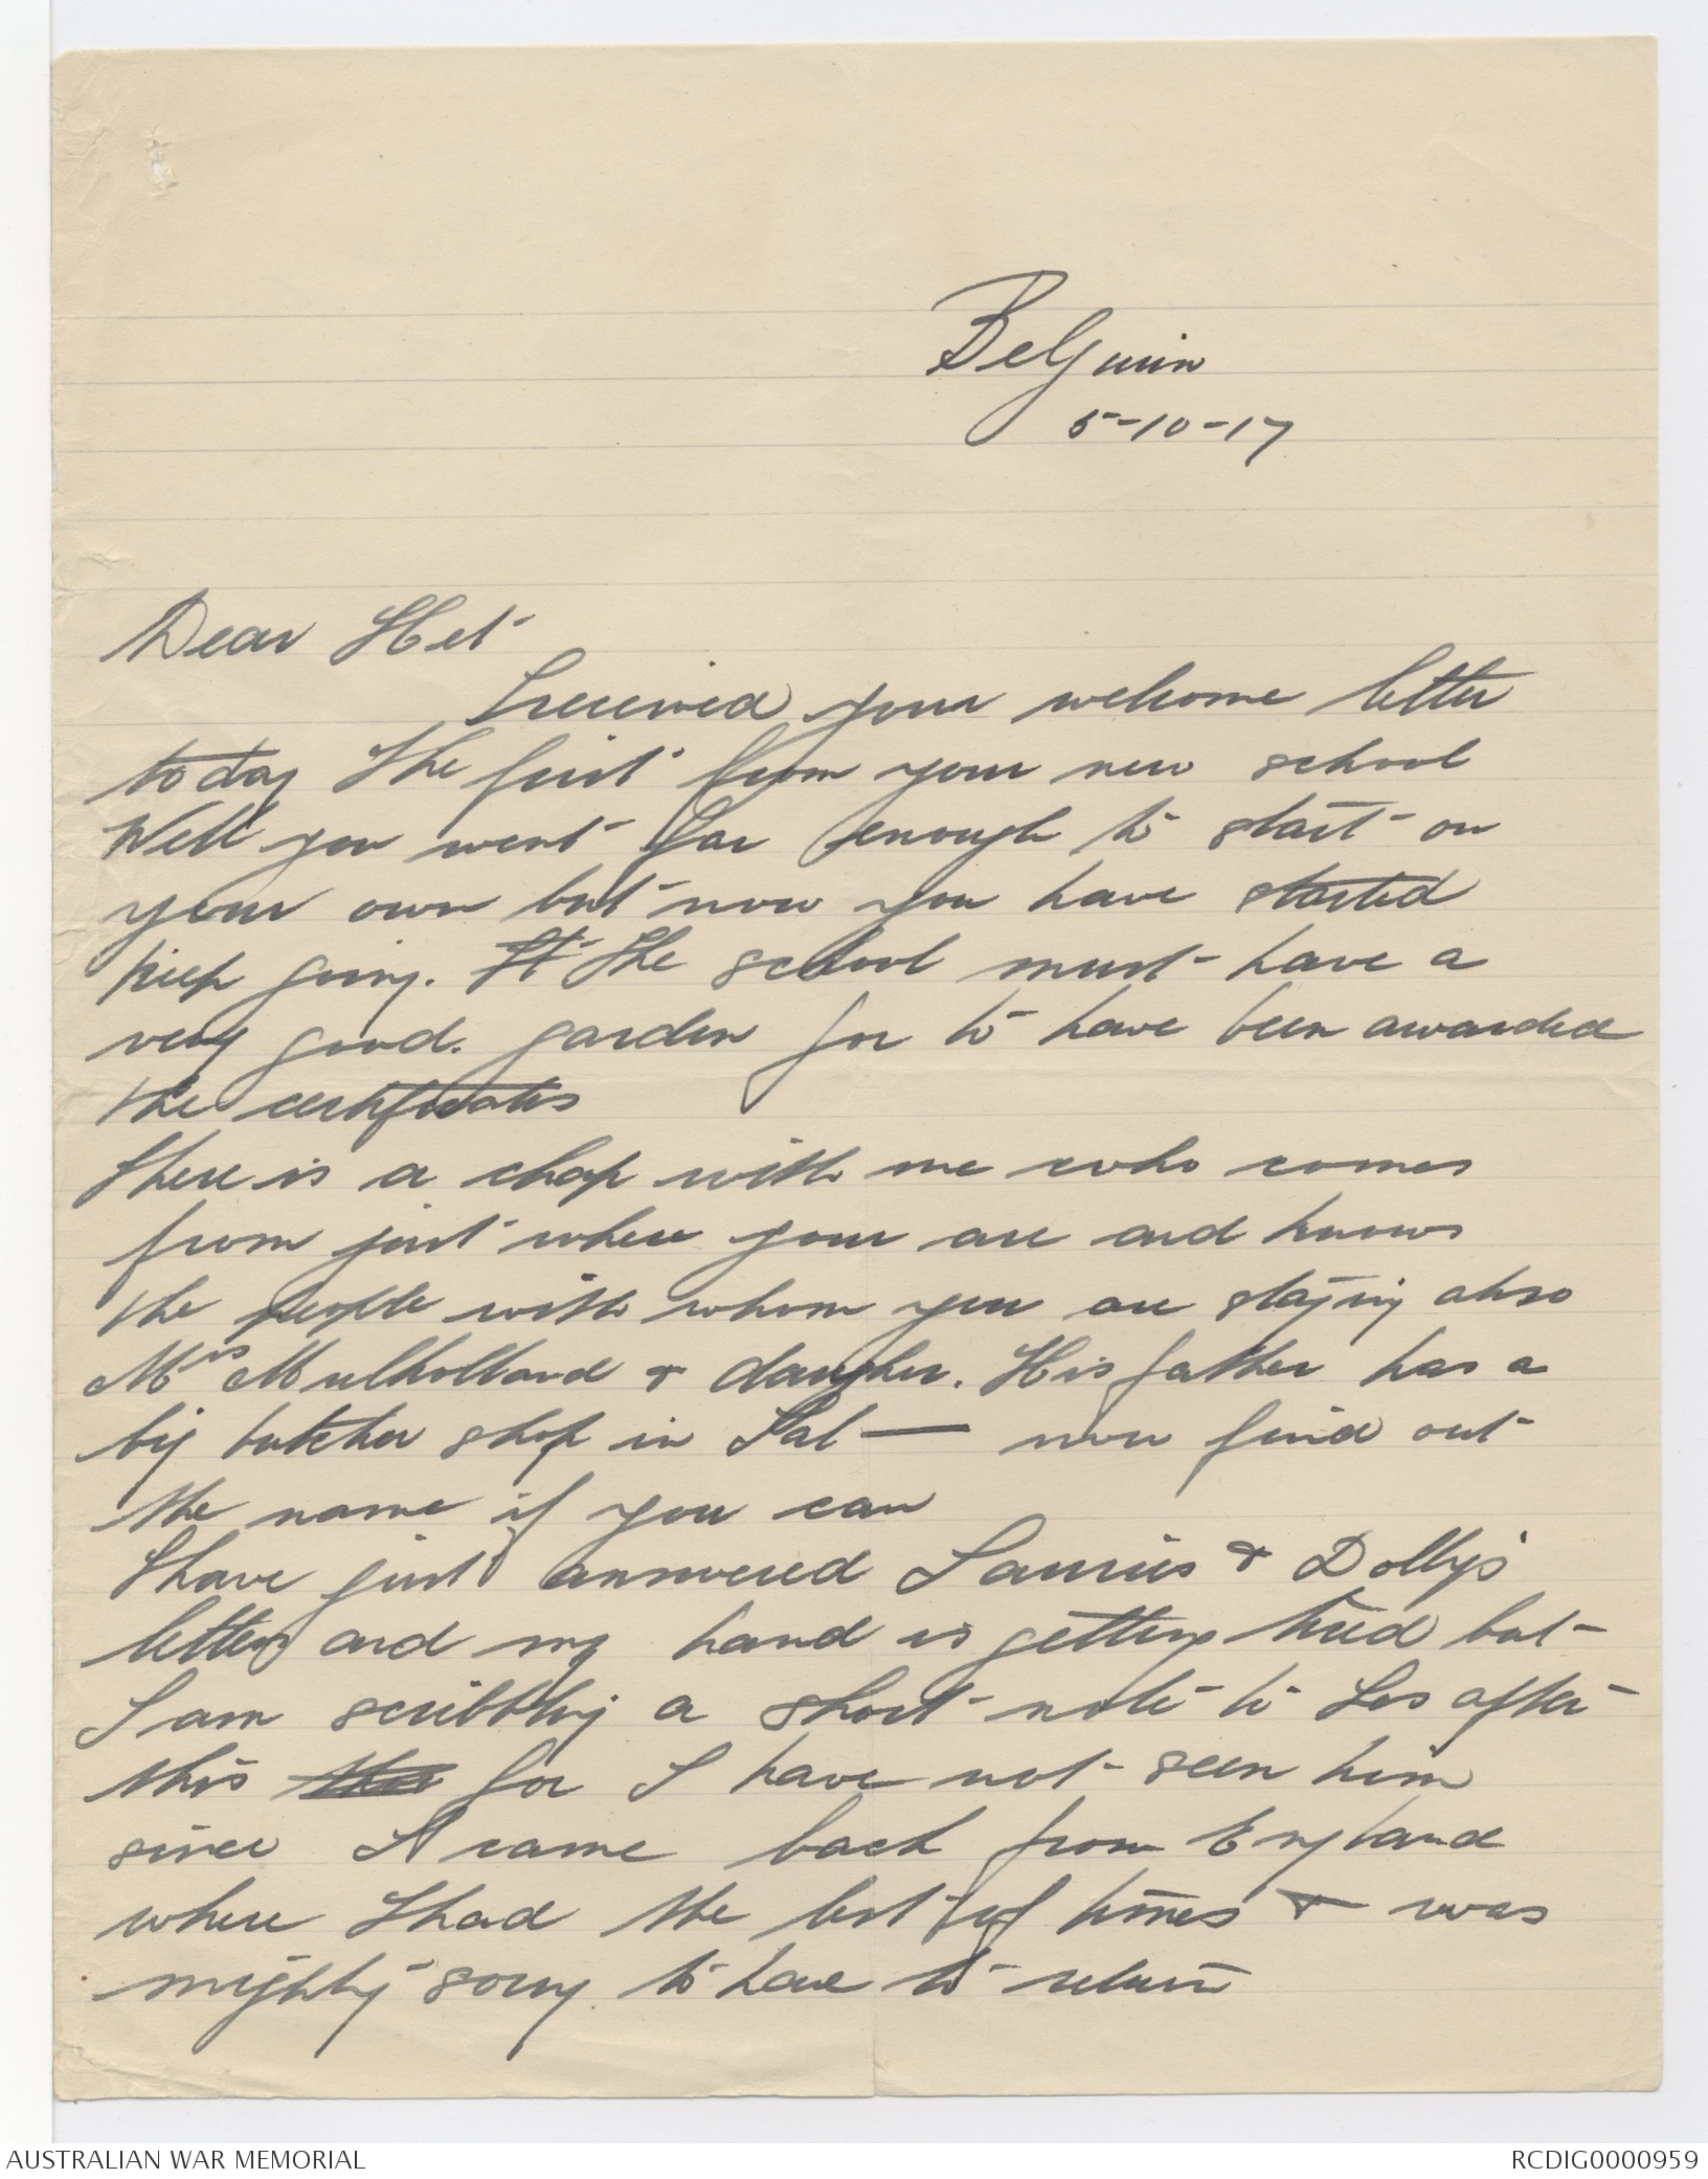 Belguim
5-10-17
Dear Het
I received your welcome letter
today The first from your new school
Well you went far enough to start on
your own but now you have started
keep going. It The school must have a
very good. garden for to have been awarded
the certificates
There is a chap with me who comes
from just where your are and knows
the people with whom you are staying also
Mrs Mulholland & daughter. His father has a
big butcher shop in Sal— now find out
the name if you can
I have just answered Lauries & Dolly's
letters and my hand is getting tired but
I am scribbling a short note to Les after
this for I have not seen him
since I came back from England
where I had the best of times & was
mighty sorry to have to return
AUSTRALIAN WAR MEMORIAL
RCDIG0000959